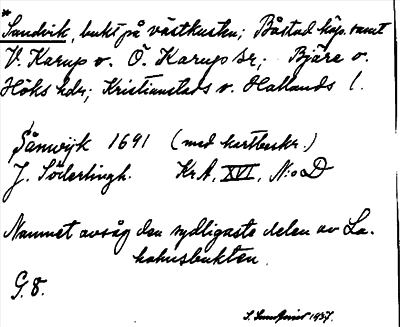 * Sandvik, bukt på västkusten; Båstad köp. samt
V. Karup o. Ö. Karups sr; Bjäre o.
Höks hdr; Kristianstads o. Hallands l.
Sånwijk 1691 (med kartbeskr.)
J. Söderlingh. Kr A, XVI, N:o D
Namnet avsåg den sydligaste delen av La-
hohusbukten.
G. 8.
S. 1937.